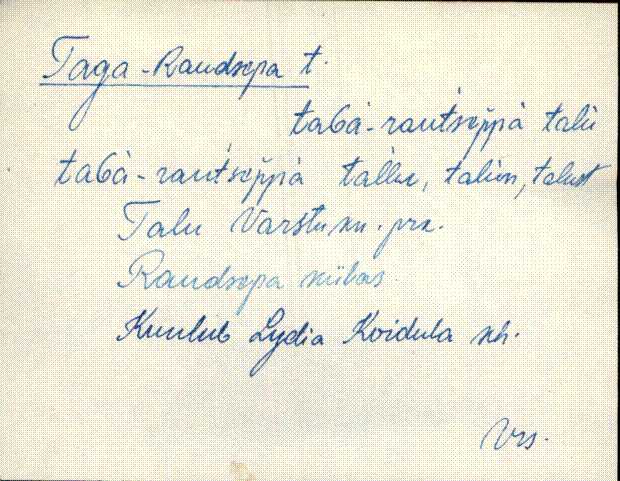 Taga-Raudsepa t.
taGà-rauťsep̆pà talù
taGà-rauťsep̆pà tallu, talun, talust
Talu Varstu kn. prk.
Raudsepa külas.
Kuulub Lydia Koidula kh.
Vrs.